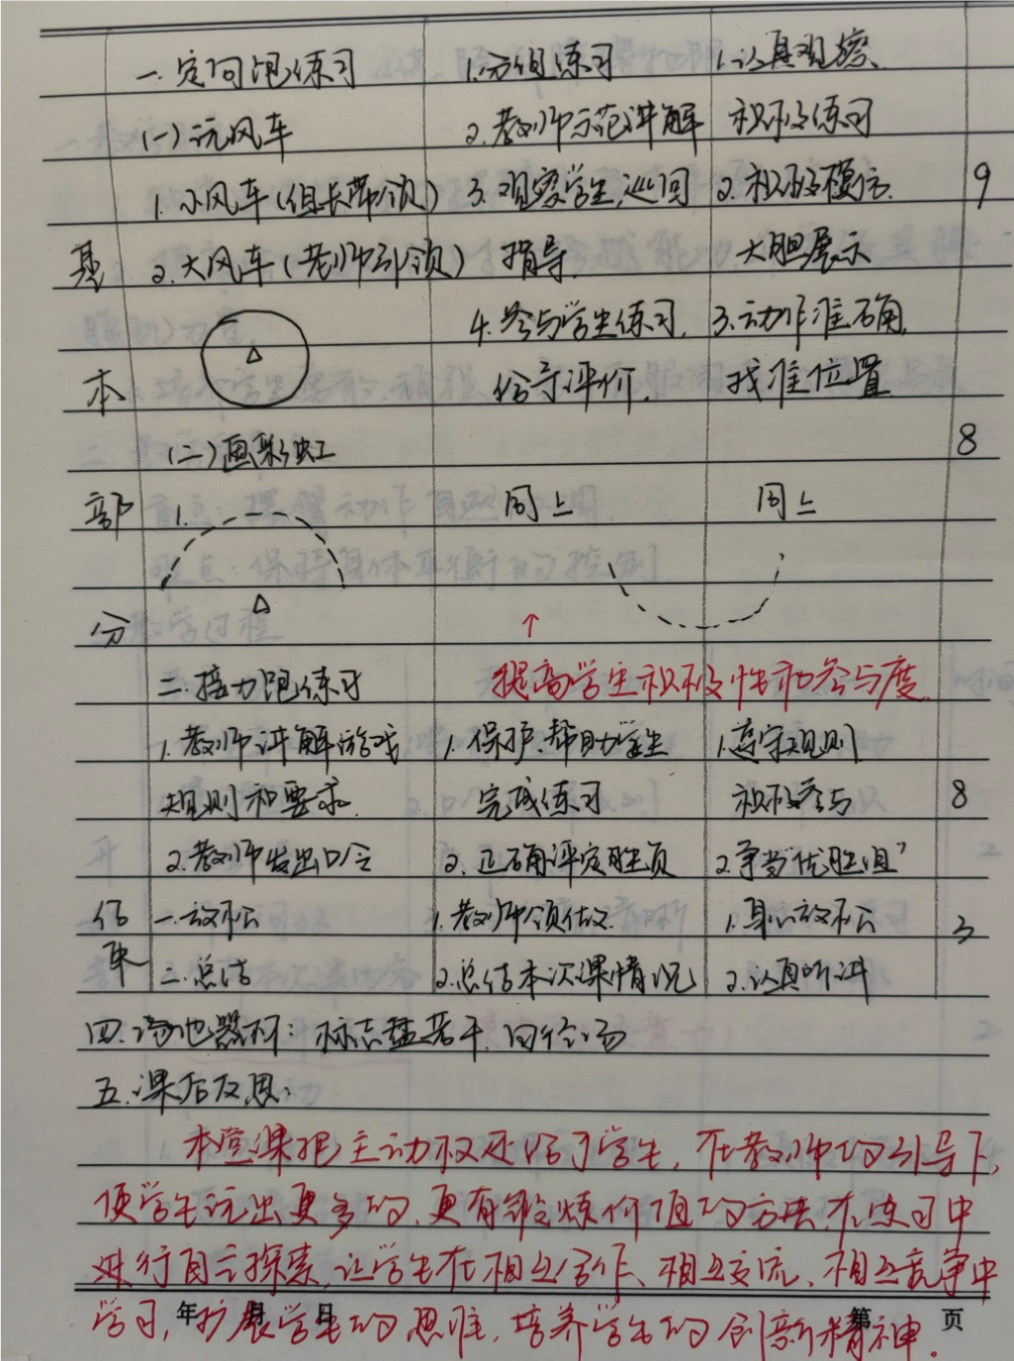 一.定向跑练习 1.分组练习 1.认真观察、
(一)玩风车 2.教师示范讲解 积极练习
1.小风车(组长带领) 3.观察学生,巡回 2.积极模仿、 9
基 2.大风车(老师引领) 指导. 大胆展示
4.参与学生练习, 3.动作准确,
本 给予评价. 找准位置
(二)画彩虹 8
部 1. 同上 同上
分
↑
二.接力跑练习 提高学生积极性和参与度.
1.教师讲解游戏 1.保护、帮助学生 1.遵守规则
规则和要求. 完成练习 积极参与 8
2.教师发出口令 2.正确评定胜负 2.争当“优胜组”
结 一.放松 1.教师领做. 1.身心放松 3
束 二.总结 2.总结本次课情况 2.认真听讲
四.场地器材:标志盘若干,田径场
五.课后反思:
本堂课把主动权还给了学生,在教师的引导下,
使学生玩出更多的、更有锻炼价值的方法,在练习中
进行自主探索,让学生在相互合作、相互交流、相互竞争中
学习,扩展学生的思维,培养学生的创新精神.
年 月 日 第 页